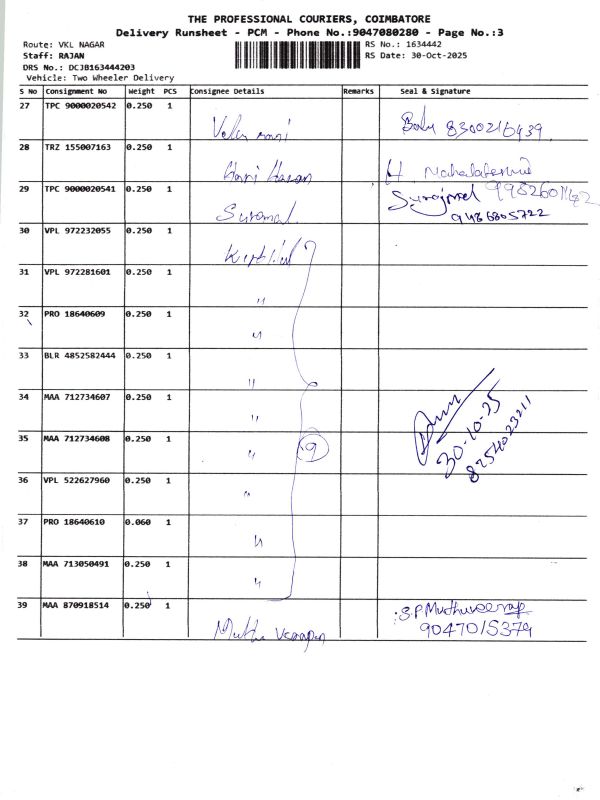 THE PROFESSIONAL COURIERS, COIMBATORE
Delivery Runsheet - PCM - Phone No.:9047080280 - Page No.:3
Route: VKL NAGAR RS No.: 1634442
Staff: RAJAN RS Date: 30-Oct-2025
DRS No.: DCJB163444203
Vehicle: Two Wheeler Delivery
S No Consignment No Weight PCS Consignee Details Remarks Seal & Signature
27 TPC 9000020542 0.250 1
8300216439
28 TRZ 155007163 0.250 1
Hari Haran H
29 TPC 9000020541 0.250 1
9486805722
30 VPL 972232055 0.250 1
31 VPL 972281601 0.250 1
"
32 PRO 18640609 0.250 1
"
33 BLR 4852582444 0.250 1
"
34 MAA 712734607 0.250 1
"
35 MAA 712734608 0.250 1
" 9
30-10-25
8754023211
36 VPL 522627960 0.250 1
"
37 PRO 18640610 0.060 1
"
38 MAA 713050491 0.250 1
"
39 MAA 870918514 0.250 1
S.P Muthuveerap
Muthu Veerappan 9047015379